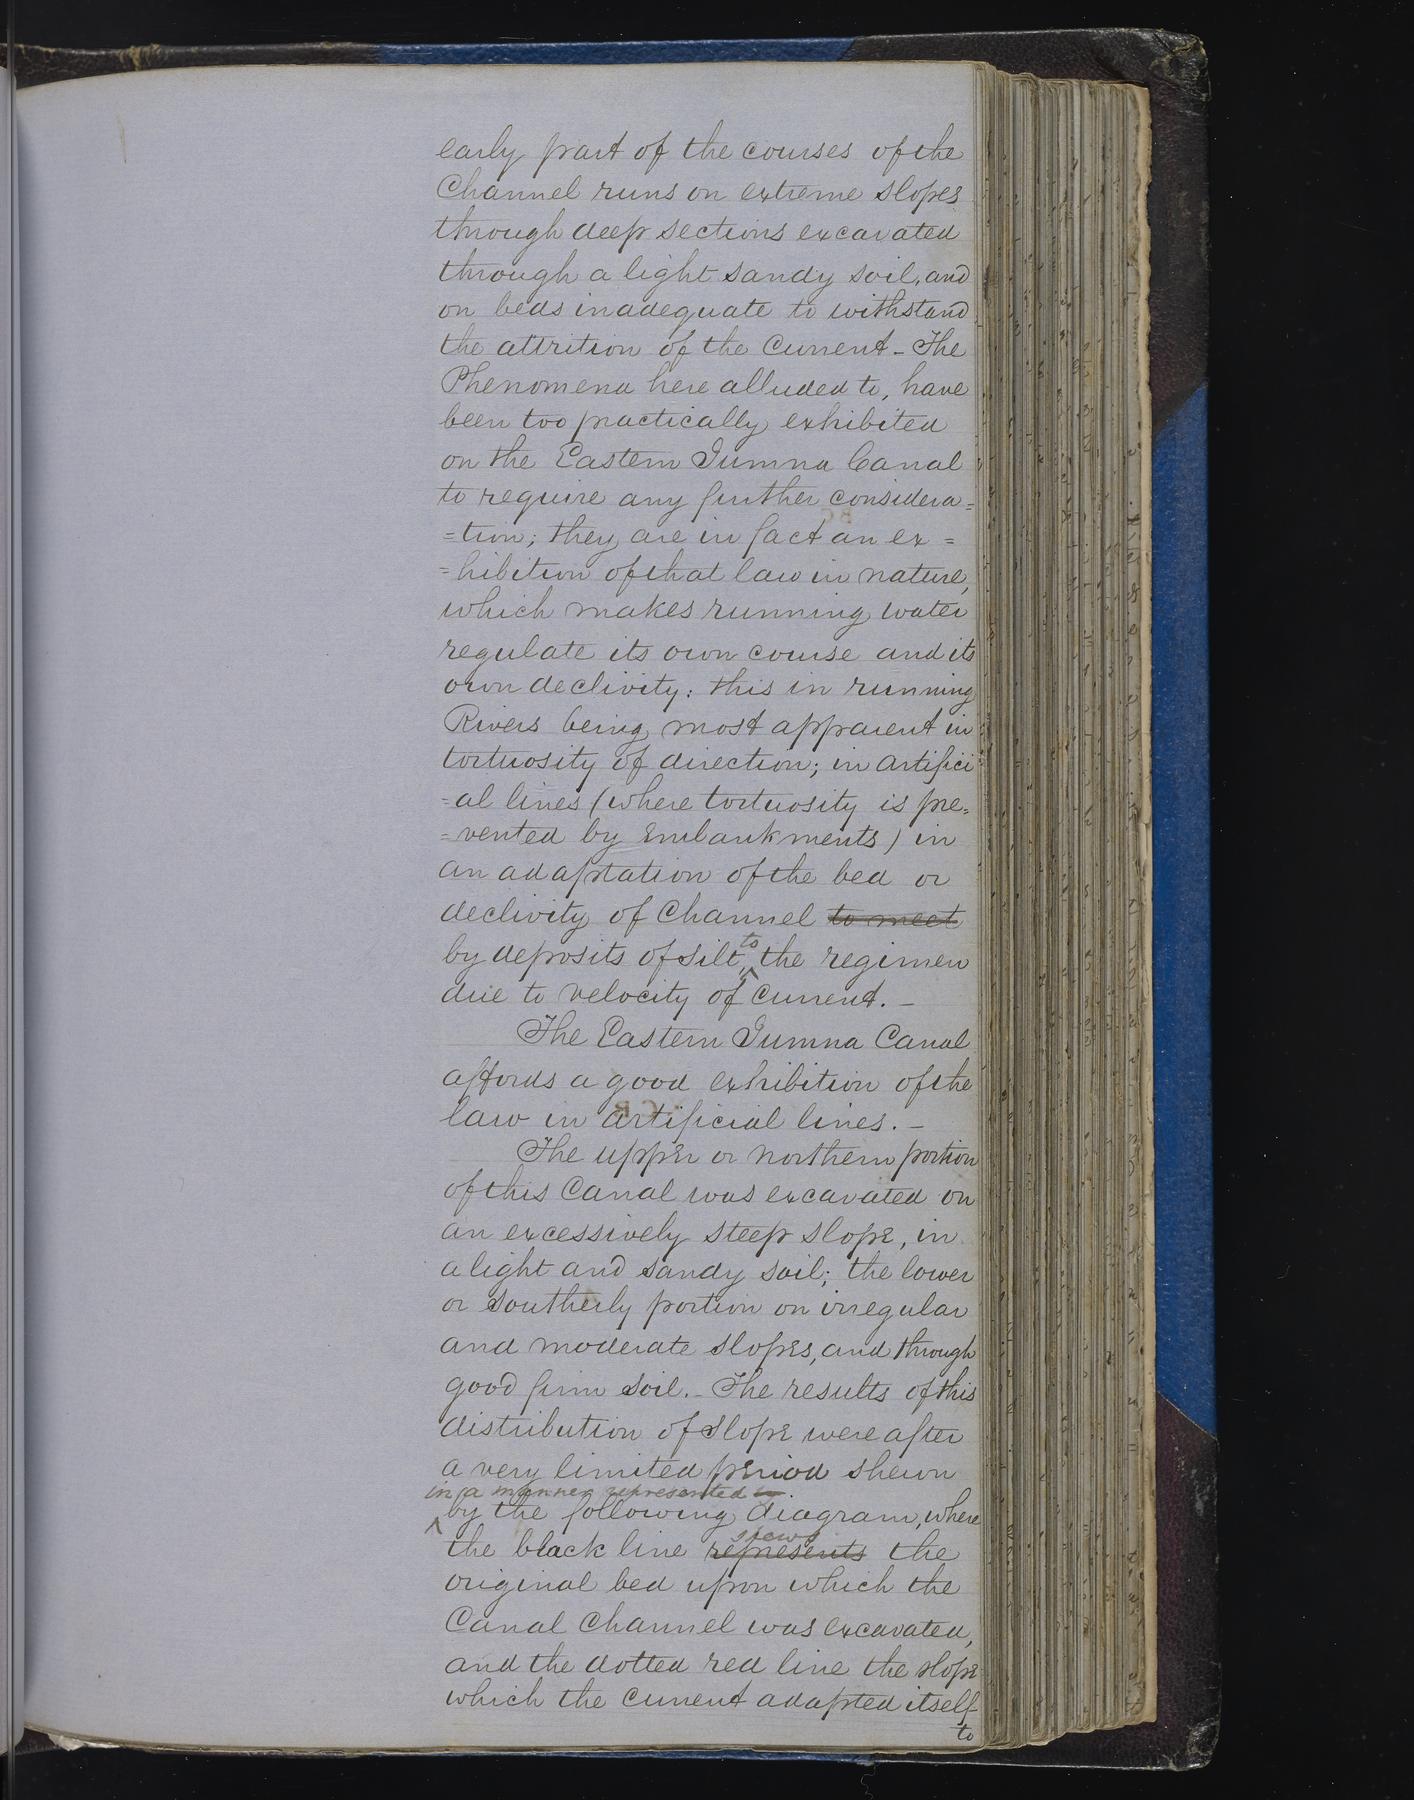 early part of the courses of the
Channel runs on extreme slopes
through deep sections excavated
through a light sandy soil, and
on beds inadequate to withstand
the attrition of the Current - The
Phenomena here alluded to, have
been too practically exhibited
on the Eastern Jumna Canal
to require any further considera=
=tion; they are in fact an ex=
=hibition of that law in nature,
which makes running water
regulate its own course and its
own declivity: this in running
Rivers being most apparent in
tortuosity of direction; in artifici
=al lines (where tortuosity is pre=
=vented by Embankments) in
an adaptation of the bed or
declivity of Channel to meet
to
by deposits of silt, the regimen
due to velocity of Current. -
The Eastern Jumna Canal
affords a good exhibition of the
law in artificial lines. -
The upper or northern portion
of this Canal was excavated on
an excessively steep slope, in
a light and sandy soil; the lower
or Southerly portion on irregular
and moderate slopes, and through
good firm soil. - The results of this
distribution of slope were after
a very limited period shewn
in a manner represented
by the following diagram, where
shews
the black line represents the
original bed upon which the
Canal Channel was excavated,
and the dotted red line the slope
which the Current adapted itself
to